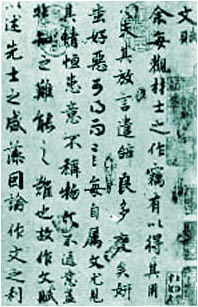 文賦
余每觀材士之作竊有以得其用
心夫其放言遣辭良多變矣妍
蚩好惡可得而言每自屬文尤見
其情恒患意不稱物文不逮意盖
非知之難能之難也故作文賦
以述先士之盛藻因論作文之利